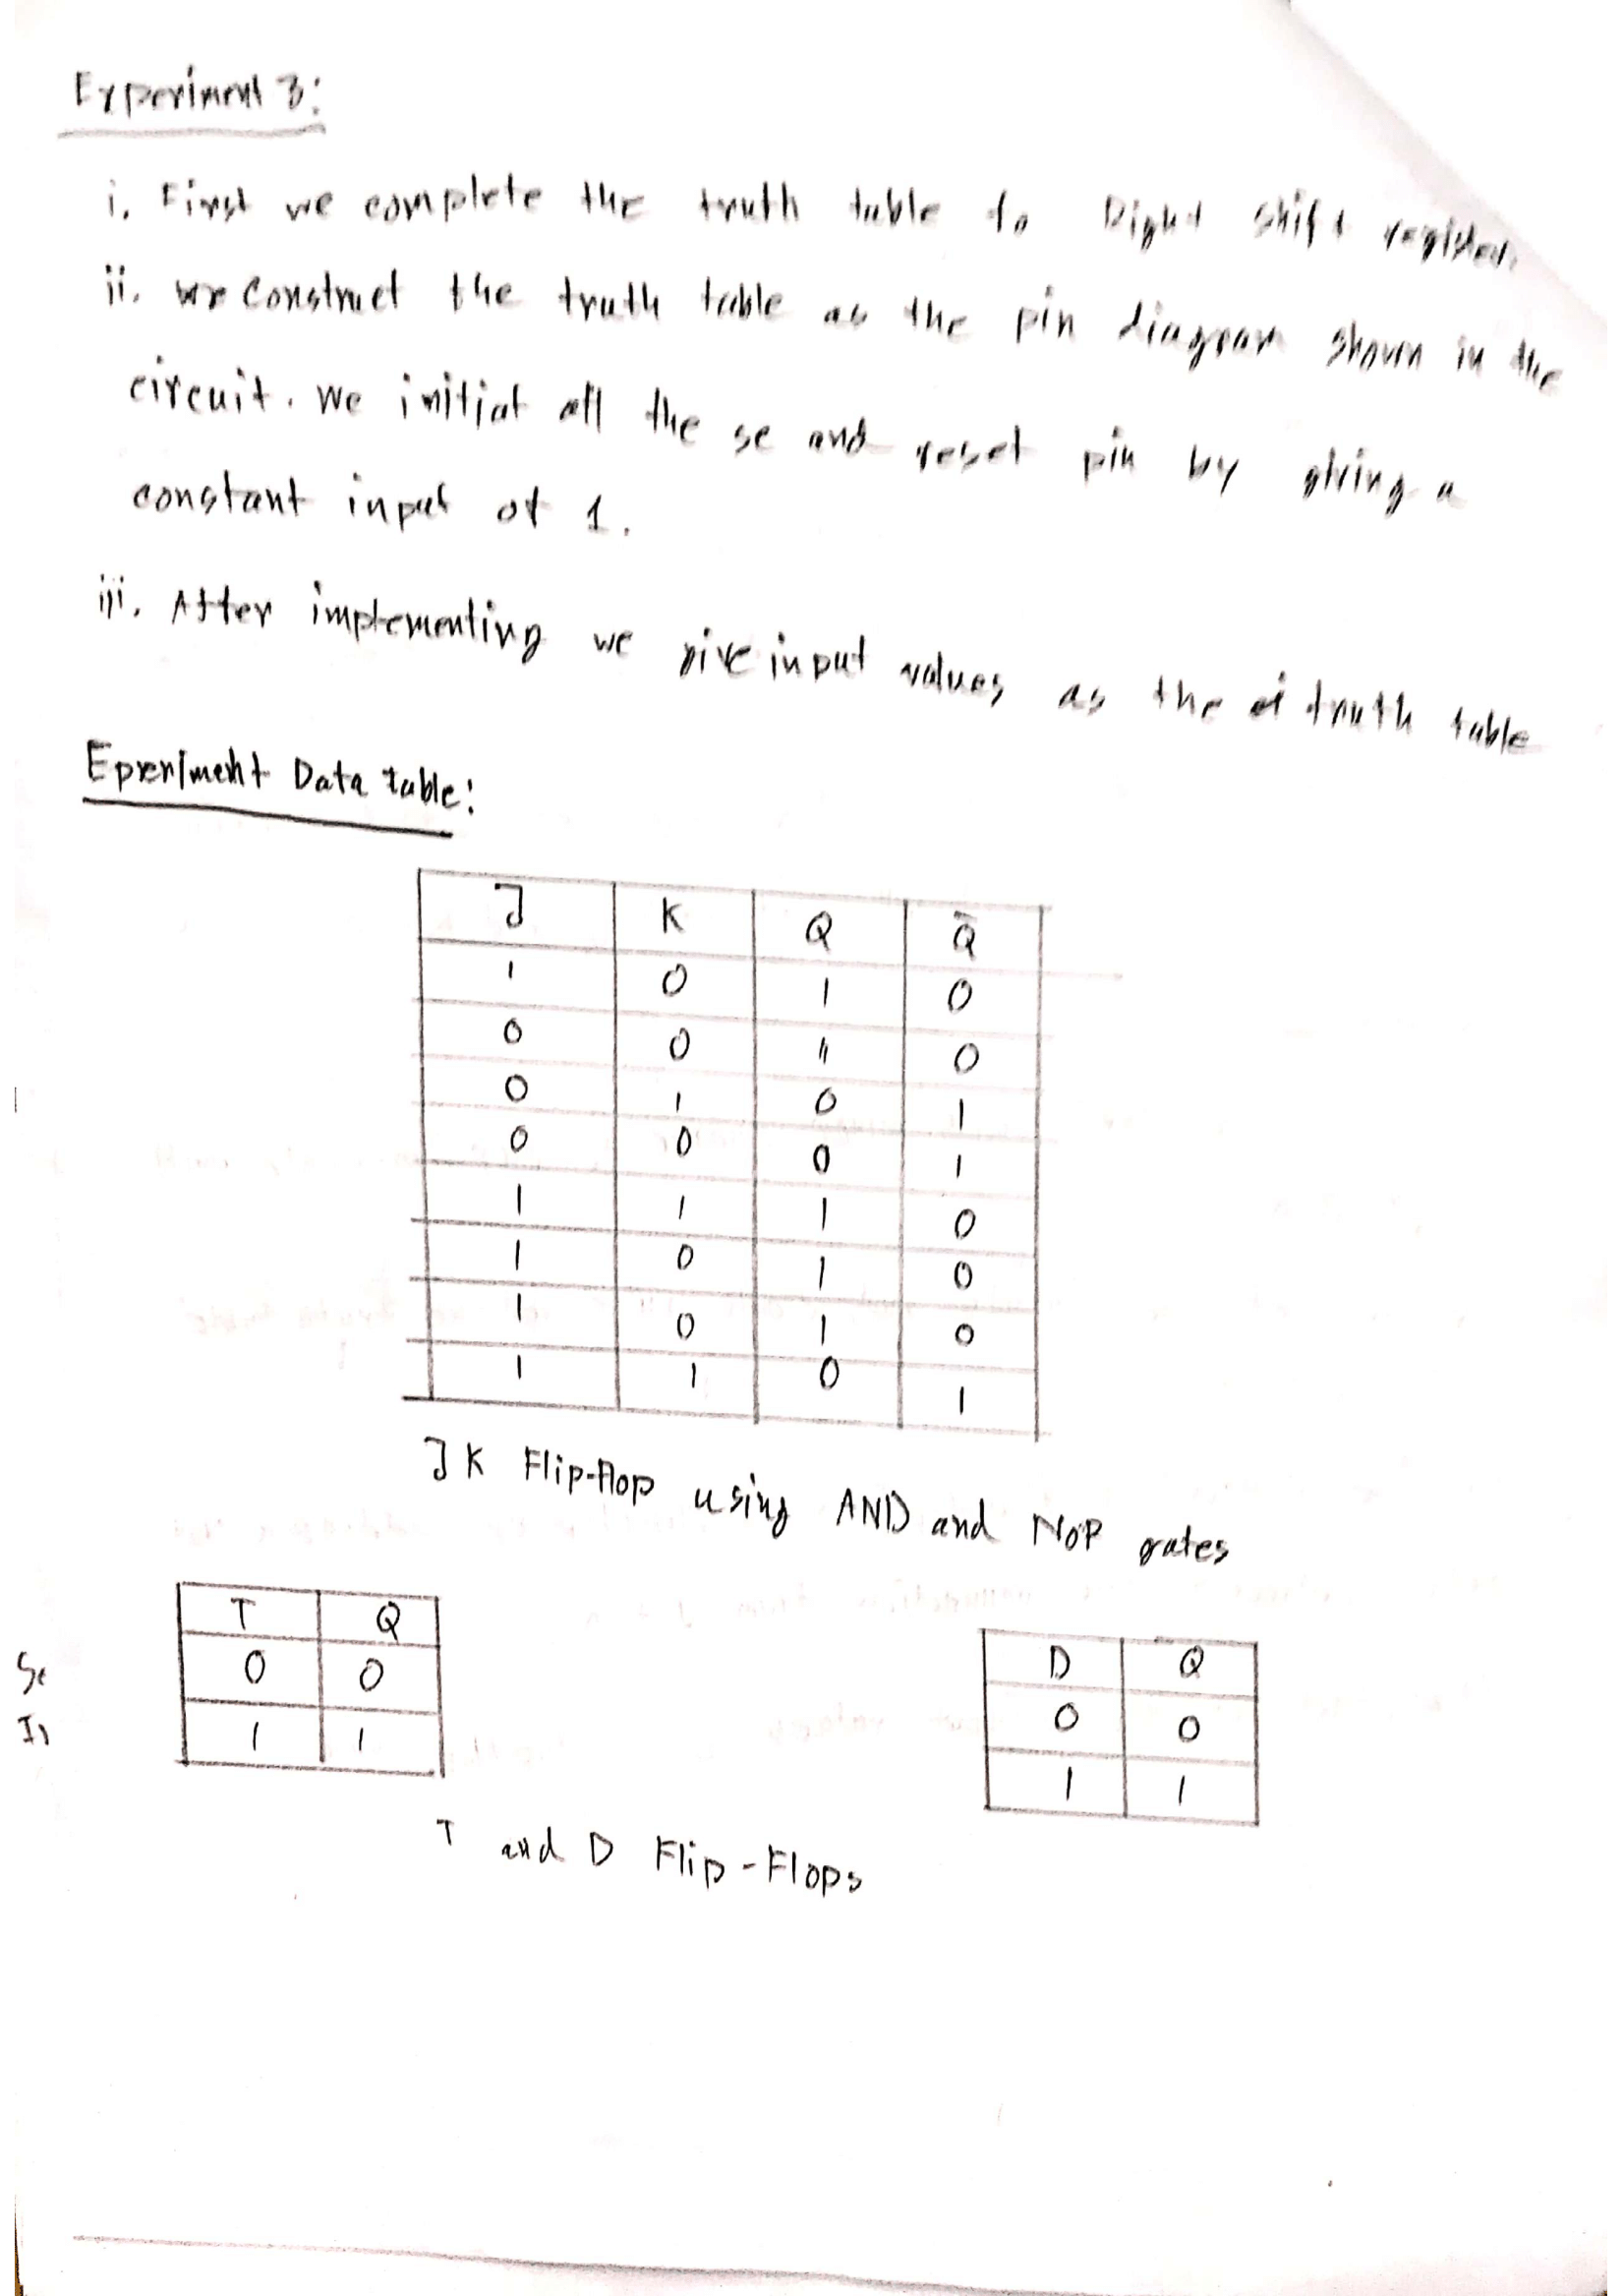 Experiment 3:
i. First we complete the truth table to Right shift register.
ii. we construct the truth table as the pin diagram shown in the
circuit. We initiat all the se and reset pin by giving a
constant input of 1.
iii. After implementing we give input values as the truth table
Epreriment Data table:
J K Q Q̄
1 0 1 0
0 0 1 0
0 1 0 1
0 0 0 1
1 1 1 0
1 0 1 0
1 0 1 0
1 1 0 1
JK Flip-flop using AND and NOR gates
T Q
0 0
1 1
D Q
0 0
1 1
T and D Flip-Flops
Se